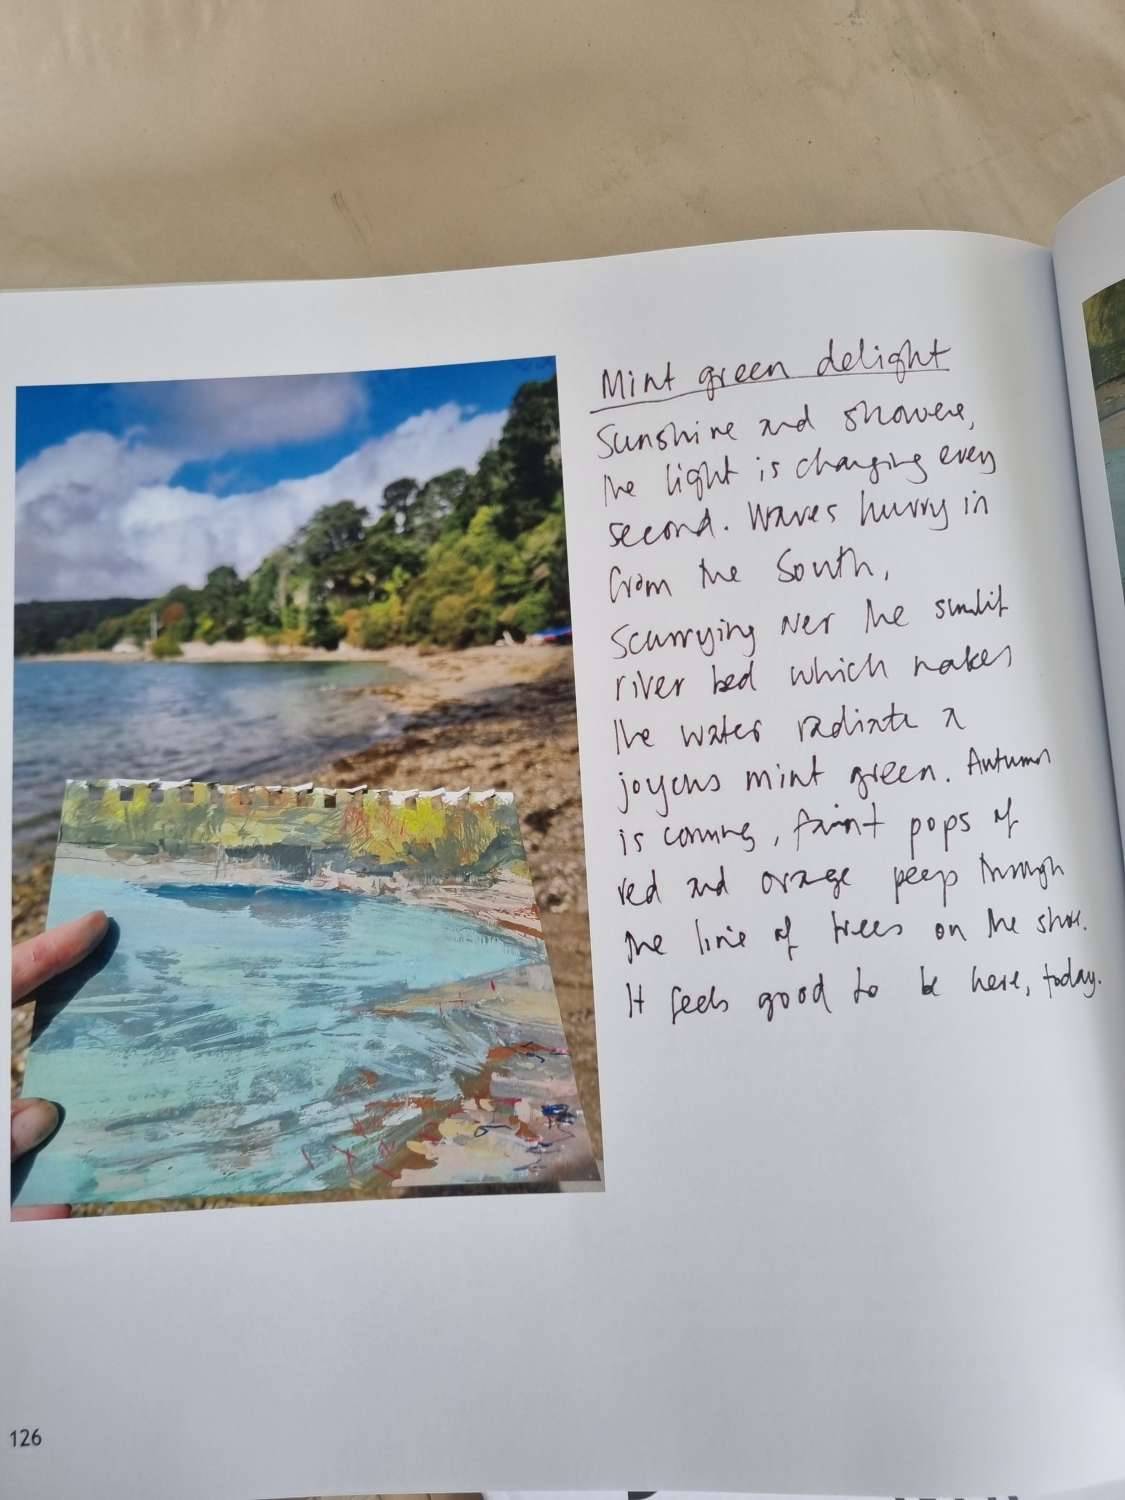 Mint green delight
Sunshine and showers,
the light is changing every
second. Waves hurry in
from the South,
scurrying over the sunlit
river bed which makes
the water radiate a
joyous mint green. Autumn
is coming, faint pops of
red and orange peep through
the line of trees on the shore.
It feels good to be here, today.
126